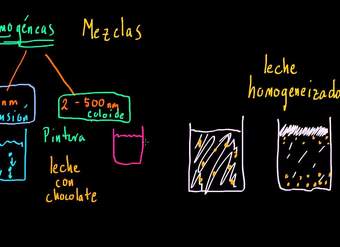 mogéneas
Mezclas
nm
nsión
2 - 500 nm
coloide
Pintura
leche
con
chocolate
leche
homogeneizada